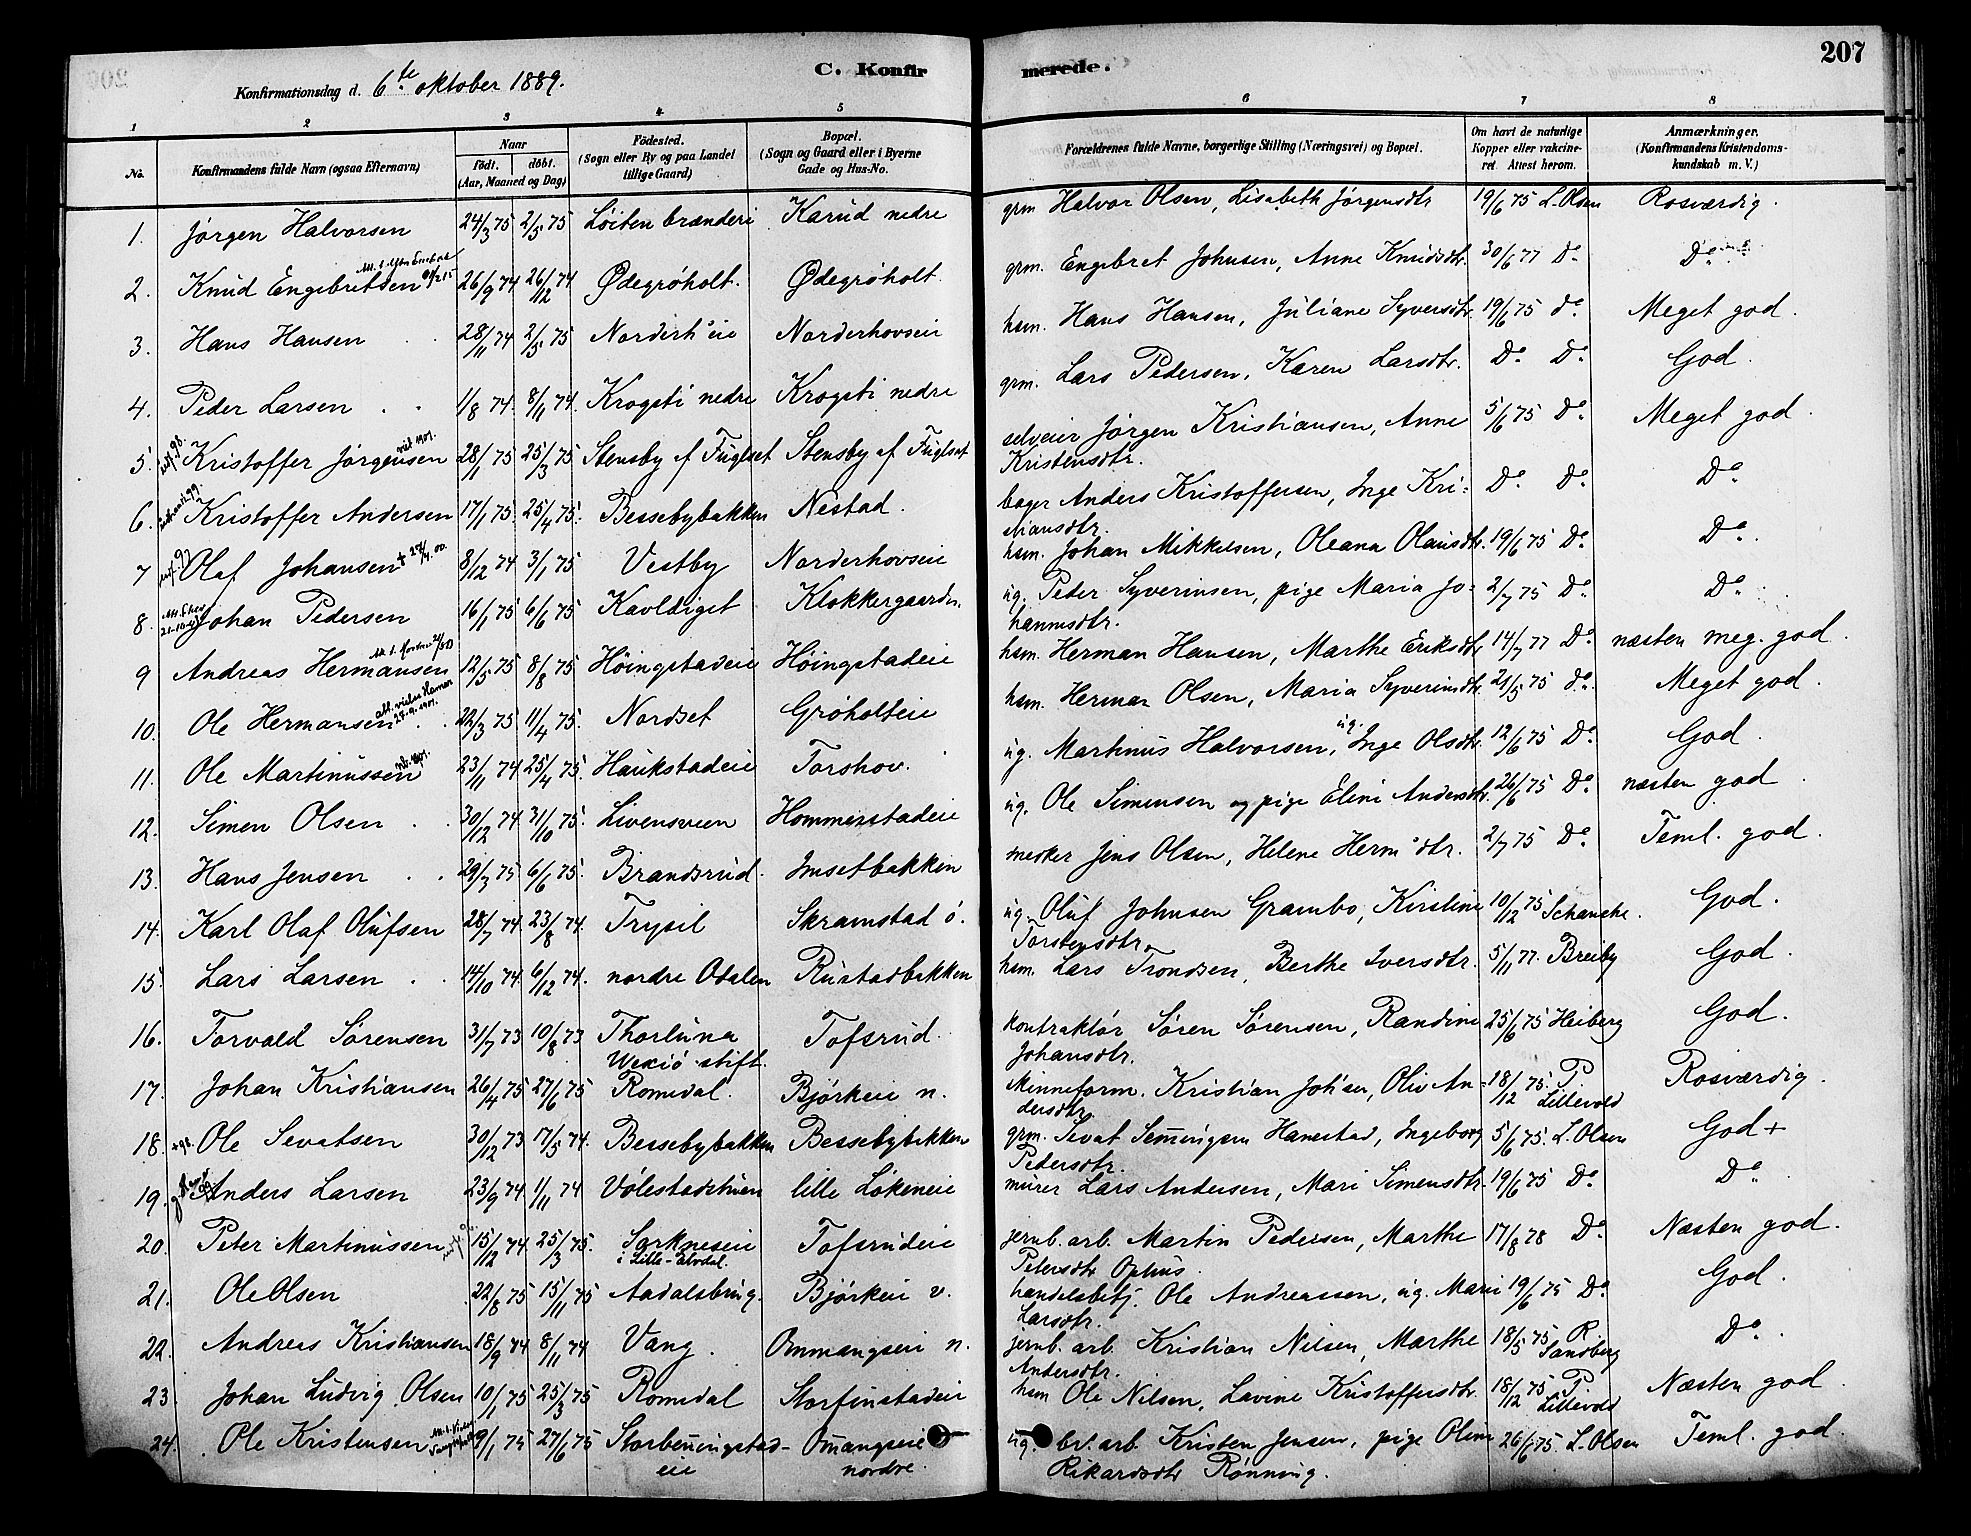 207
C. Konfirmerede.
Konfirmationsdag d. 6te oktober 1889.
1 2 3 4 5 6 7 8
No. Konfirmandens fulde Navn (ogsaa Efternavn) Naar födt. döbt. (Aar, Maaned og Dag) Födested. (Sogn eller By og paa Landet tillige Gaard) Bopæl. (Sogn og Gaard eller i Byerne Gade og Hus-No. Forældrenes fulde Navne, borgerlige Stilling (Næringsvei) og Bopæl. Om havt de naturlige Kopper eller vakcineret. Attest herom. Anmærkninger. (Konfirmandens Kristendomskundskab m. V.)
1. Jørgen Halvorsen 24/3 75 2/5 75 Løiten brænderi Karud nedre grm Halvor Olsen, Lisabeth Jørgensdtr 19/6 75 L. Olsen Rosværdig.
2. Knud Engebretsen 26/9 74 26/12 74 Ødegrøholt. Ødegrøholt. grm. Engebret Johnsen, Anne Knudsdtr. 30/6 77 Do Do
3. Hans Hansen 28/11 74 2/5 75 Norderh° eie Norderhovseie hsm. Hans Hansen, Juliane Syversdtr. 19/6 75 do. Meget god.
4. Peder Larsen 1/8 74. 8/11 74. Krogsti nedre Krogsti nedre grm. Lars Pedersen, Karen Larsdtr. Do Do God.
5. Kristoffer Jørgensen 28/1 75 25/3 75 Stensby af Fuglset Stensby af Fuglset selveier Jørgen Kristiansen, Anne 5/6 75 Do Meget god.
Kristensdtr.
6. Kristoffer Andersen 17/1 75. 25/4 75. Bessebybakken Nestad. bager Anders Kristoffersen, Inge Kri- Do Do Do
stiansdtr.
7 Olaf Johansen + 8/12 74 3/1 75 Vestby Norderhovseie hsm. Johan Mikkelsen, Oleana Olausdtr. 19/6 75 Do Do
8. Johan Pedersen 16/1 75 6/6 75 Kavldiget Klokkergaarden. ug. Peder Syverinsen, pige Maria Jo- 2/7 75 Do Do
hannisdtr.
9 Andreas Hermansen 12/5 75 8/8 75 Høingstadeie Høingstadeie hsm. Herman Hansen, Marthe Eriksdtr 14/7 77 Do næsten meg. god.
10. Ole Hermansen 22/3 75 11/4 75. Nordset Grøholteie hsm. Herman Olsen, Maria Syverinsdtr. 21/5 75 do. Meget god.
11. Ole Martinussen 23/11 74 25/4 75. Haukstadeie Torshov. ug. Martinus Halvorsen, ug. Inge Olsdtr. 12/6 75 Do God.
12. Simen Olsen 30/12 74 31/10 75. Livensveen Hommerstadeie ug. Ole Simensen og pige Elini Andersdtr. 26/6 75 Do næsten god
13. Hans Jensen 29/3 75 6/6 75. Brandsrud. Imsetbakken snekker Jens Olsen, Helene Herm°dtr. 2/7 75 Do Teml. god.
14. Karl Olaf Olufsen 28/7 74. 23/8 74. Trysil Skramstad ø. ug. Oluf Johnsen Grambo, Kirstine 10/12 75 Schanche. God.
Torstensdtr.
15. Lars Larsen 14/10 74. 6/12 74. nordre Odalen Rustadbakken hsm. Lars Trondsen, Berthe Iversdtr. 5/11 77. Breiby God.
16. Torvald Sørensen 31/7 73 10/8 73 Thorluna Tofsrud. kontraktør Søren Sørensen, Randine 25/6 75 Heiberg God.
Wexiö stift. Johansdtr.
17. Johan Kristiansen 26/4 75 27/6 75 Romedal. Bjørkeie n. Mineform. Kristian Joh'sen, Oliv An- 18/12 75. P. Lillevold Rosværdig.
dersdtr.
18. +98. Ole Sevatsen 30/12 73 17/5 74. Bessebybakken Bessebybakken grm. Sevat Semmingsen Hanestad, Ingeborg 5/6 75. L. Olsen God +
Pedersdtr.
19. Anders Larsen 23/9 74. 1/11 74 lille Løkeneie murer Lars Andersen, Mari Simensdtr. 19/6 75 Do Do
20. Peter Martinussen 15/12 74. 25/3 75. Sorkneseie Tofsrudeie jernb. arb. Martin Pedersen, Marthe 17/8 78 Do Næsten god.
i Lille-Elvdal. Petersdtr Ophus.
21. Ole Olsen 22/8 75 15/11 75 Aadalsbrug. Bjørkeie v. handelsbetj. Ole Andreassen, ug. Mari 19/6 75 Do God.
Larsdtr.
22. Andreas Kristiansen 18/9 74 8/11 74 Vang. Ommangseie n. jernb. arb. Kristian Nilsen, Marthe 18/5 75 R. Sandberg Do
Andersdtr.
23. Johan Ludvig Olsen 10/1 75 25/3 75 Romedal Storfinstadeie hsm Ole Nilsen, Lavine Kristoffersdtr. 18/12 75 P. Lillevold Næsten god.
24. Ole Kristensen 9/1 75 27/6 75 Storbenningstad- Omangseie ug. arb. Kristen Jensen, pige Oline 26/6 75. L. Olsen Teml. god.
eie nordre. Rikardsdtr Rønning.